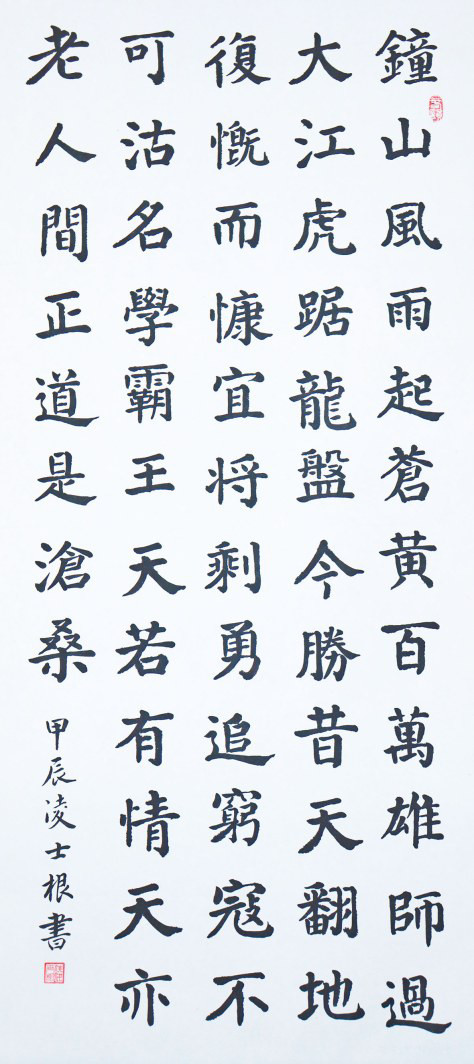 鐘山風雨起蒼黄百萬雄師過
大江虎踞龍盤今勝昔天翻地
復慨而慷宜将剩勇追窮寇不
可沽名學霸王天若有情天亦
老人間正道是滄桑
甲辰凌士根書